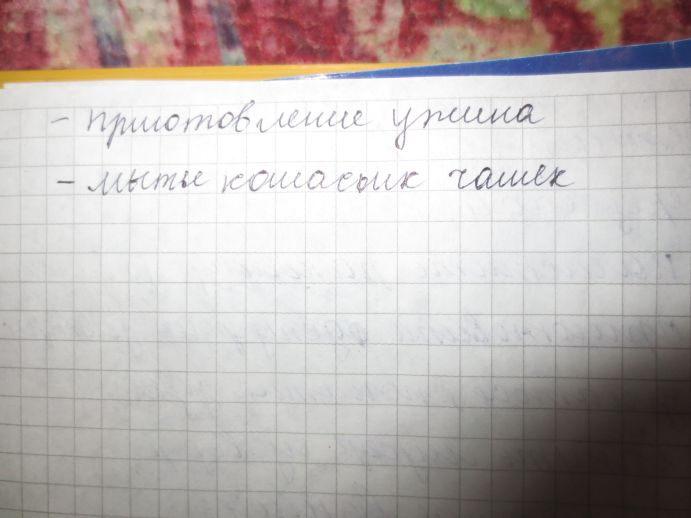 - приготовление ужина
- мытье кошачьих чашек